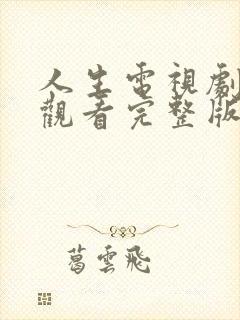 人生電視劇
觀看完整版
葛雲飛